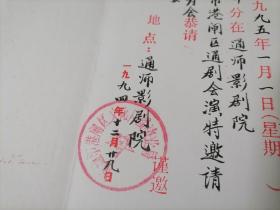 九九五年一月一日(星期
分在通师影剧院
市港闸区通剧会演特邀请
会恭请
地点:通师影剧院
谨邀
一九九四年十二月廿九日